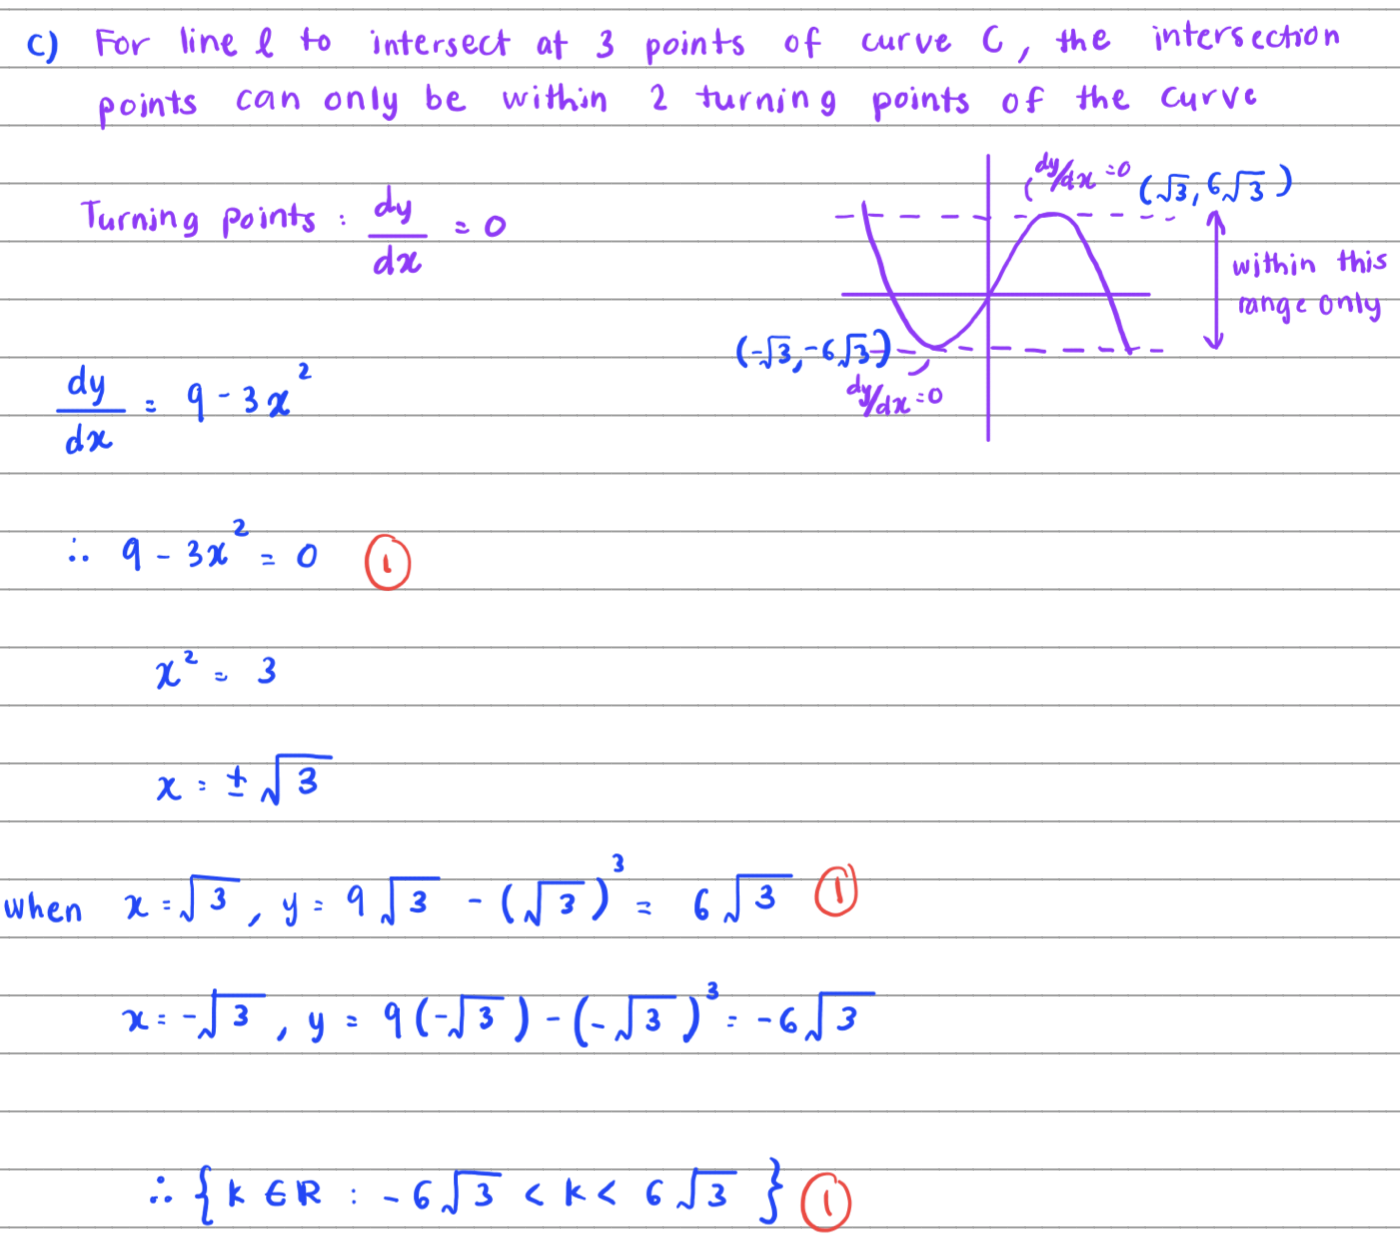 c) For line l to intersect at 3 points of curve C, the intersection
points can only be within 2 turning points of the curve
dy/dx =0 (√3, 6√3)
Turning points : dy/dx = 0
within this
range only
(-√3, -6√3)
dy/dx =0
dy/dx = 9 - 3x²
∴ 9 - 3x² = 0 ①
x² = 3
x = ± √3
when x = √3, y = 9√3 - (√3)³ = 6√3 ①
x = -√3, y = 9(-√3) - (-√3)³ = -6√3
∴ {k ∈ R : -6√3 < k < 6√3} ①